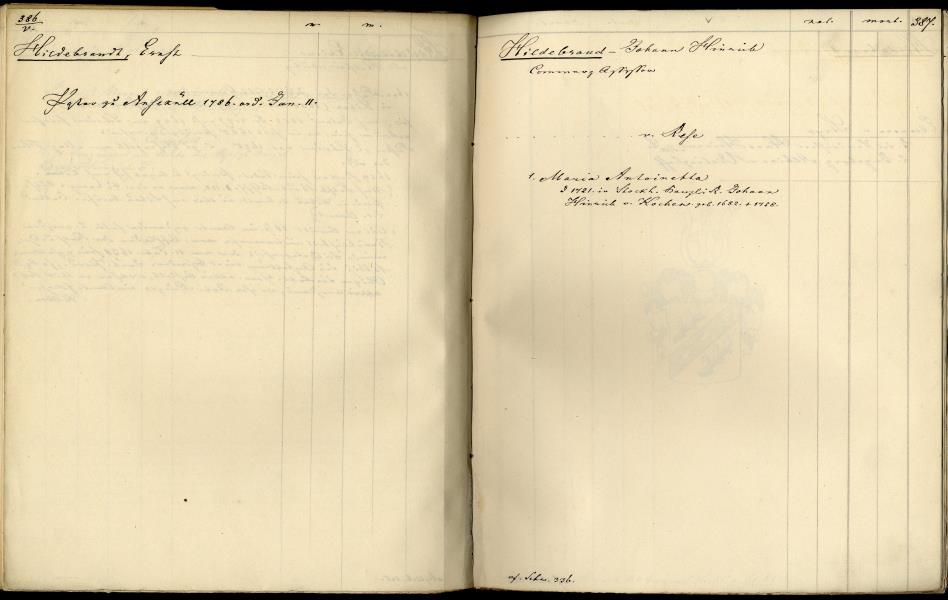 386
v.
n. m.
Hildebrandt, Ernst
Pastor zu Anseküll 1786. ord. Jan. 11.
nat. mort. 387.
Hildebrand – Johann Hinrich
Commerz Assessor
v. Rese
1. Maria Antoinetta
1721. in Stockh. Kanzlei R. Johann
Hinrich v. Kochen. geb. 1682. + 1758.
cf. 326.